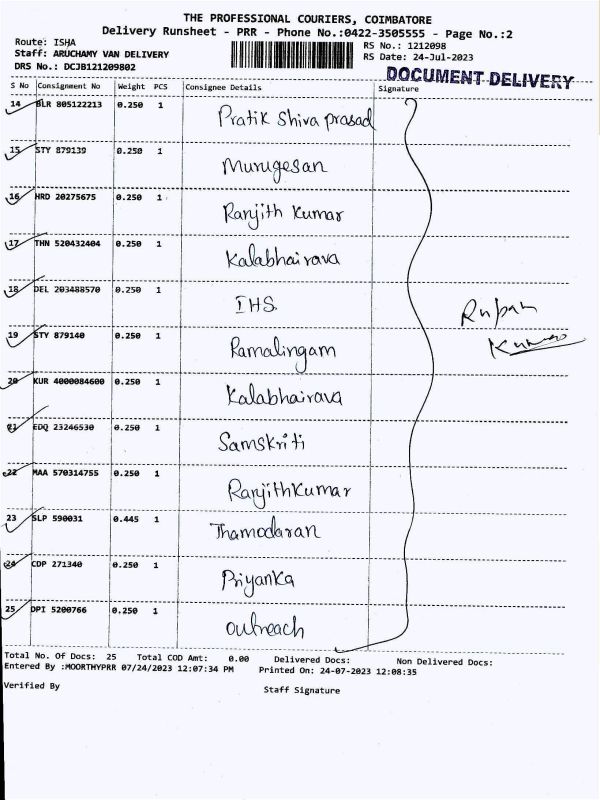 THE PROFESSIONAL COURIERS, COIMBATORE
Delivery Runsheet - PRR - Phone No.:0422-3505555 - Page No.:2
Route: ISHA
RS No.: 1212098
Staff: ARUCHAMY VAN DELIVERY
RS Date: 24-Jul-2023
DRS No.: DCJB121209802
DOCUMENT DELIVERY
S No Consignment No Weight PCS Consignee Details Signature
14 BLR 805122213 0.250 1 Pratik Shiva prasad
15 STY 879139 0.250 1 Murugesan
16 HRD 20275675 0.250 1 Ranjith Kumar
17 THN 520432404 0.250 1 Kalabhairava
18 DEL 203488570 0.250 1 IHS
Rupan
Kumar
19 STY 879140 0.250 1 Ramalingam
20 KUR 4000084600 0.250 1 Kalabhairava
21 EDQ 23246530 0.250 1 Samskriti
22 MAA 570314755 0.250 1 RanjithKumar
23 SLP 590031 0.445 1 Thamodaran
24 CDP 271340 0.250 1 Priyanka
25 DPI 5200766 0.250 1 outreach
Total No. Of Docs: 25 Total COD Amt: 0.00 Delivered Docs: Non Delivered Docs:
Entered By :MOORTHYPRR 07/24/2023 12:07:34 PM Printed On: 24-07-2023 12:08:35
Verified By Staff Signature